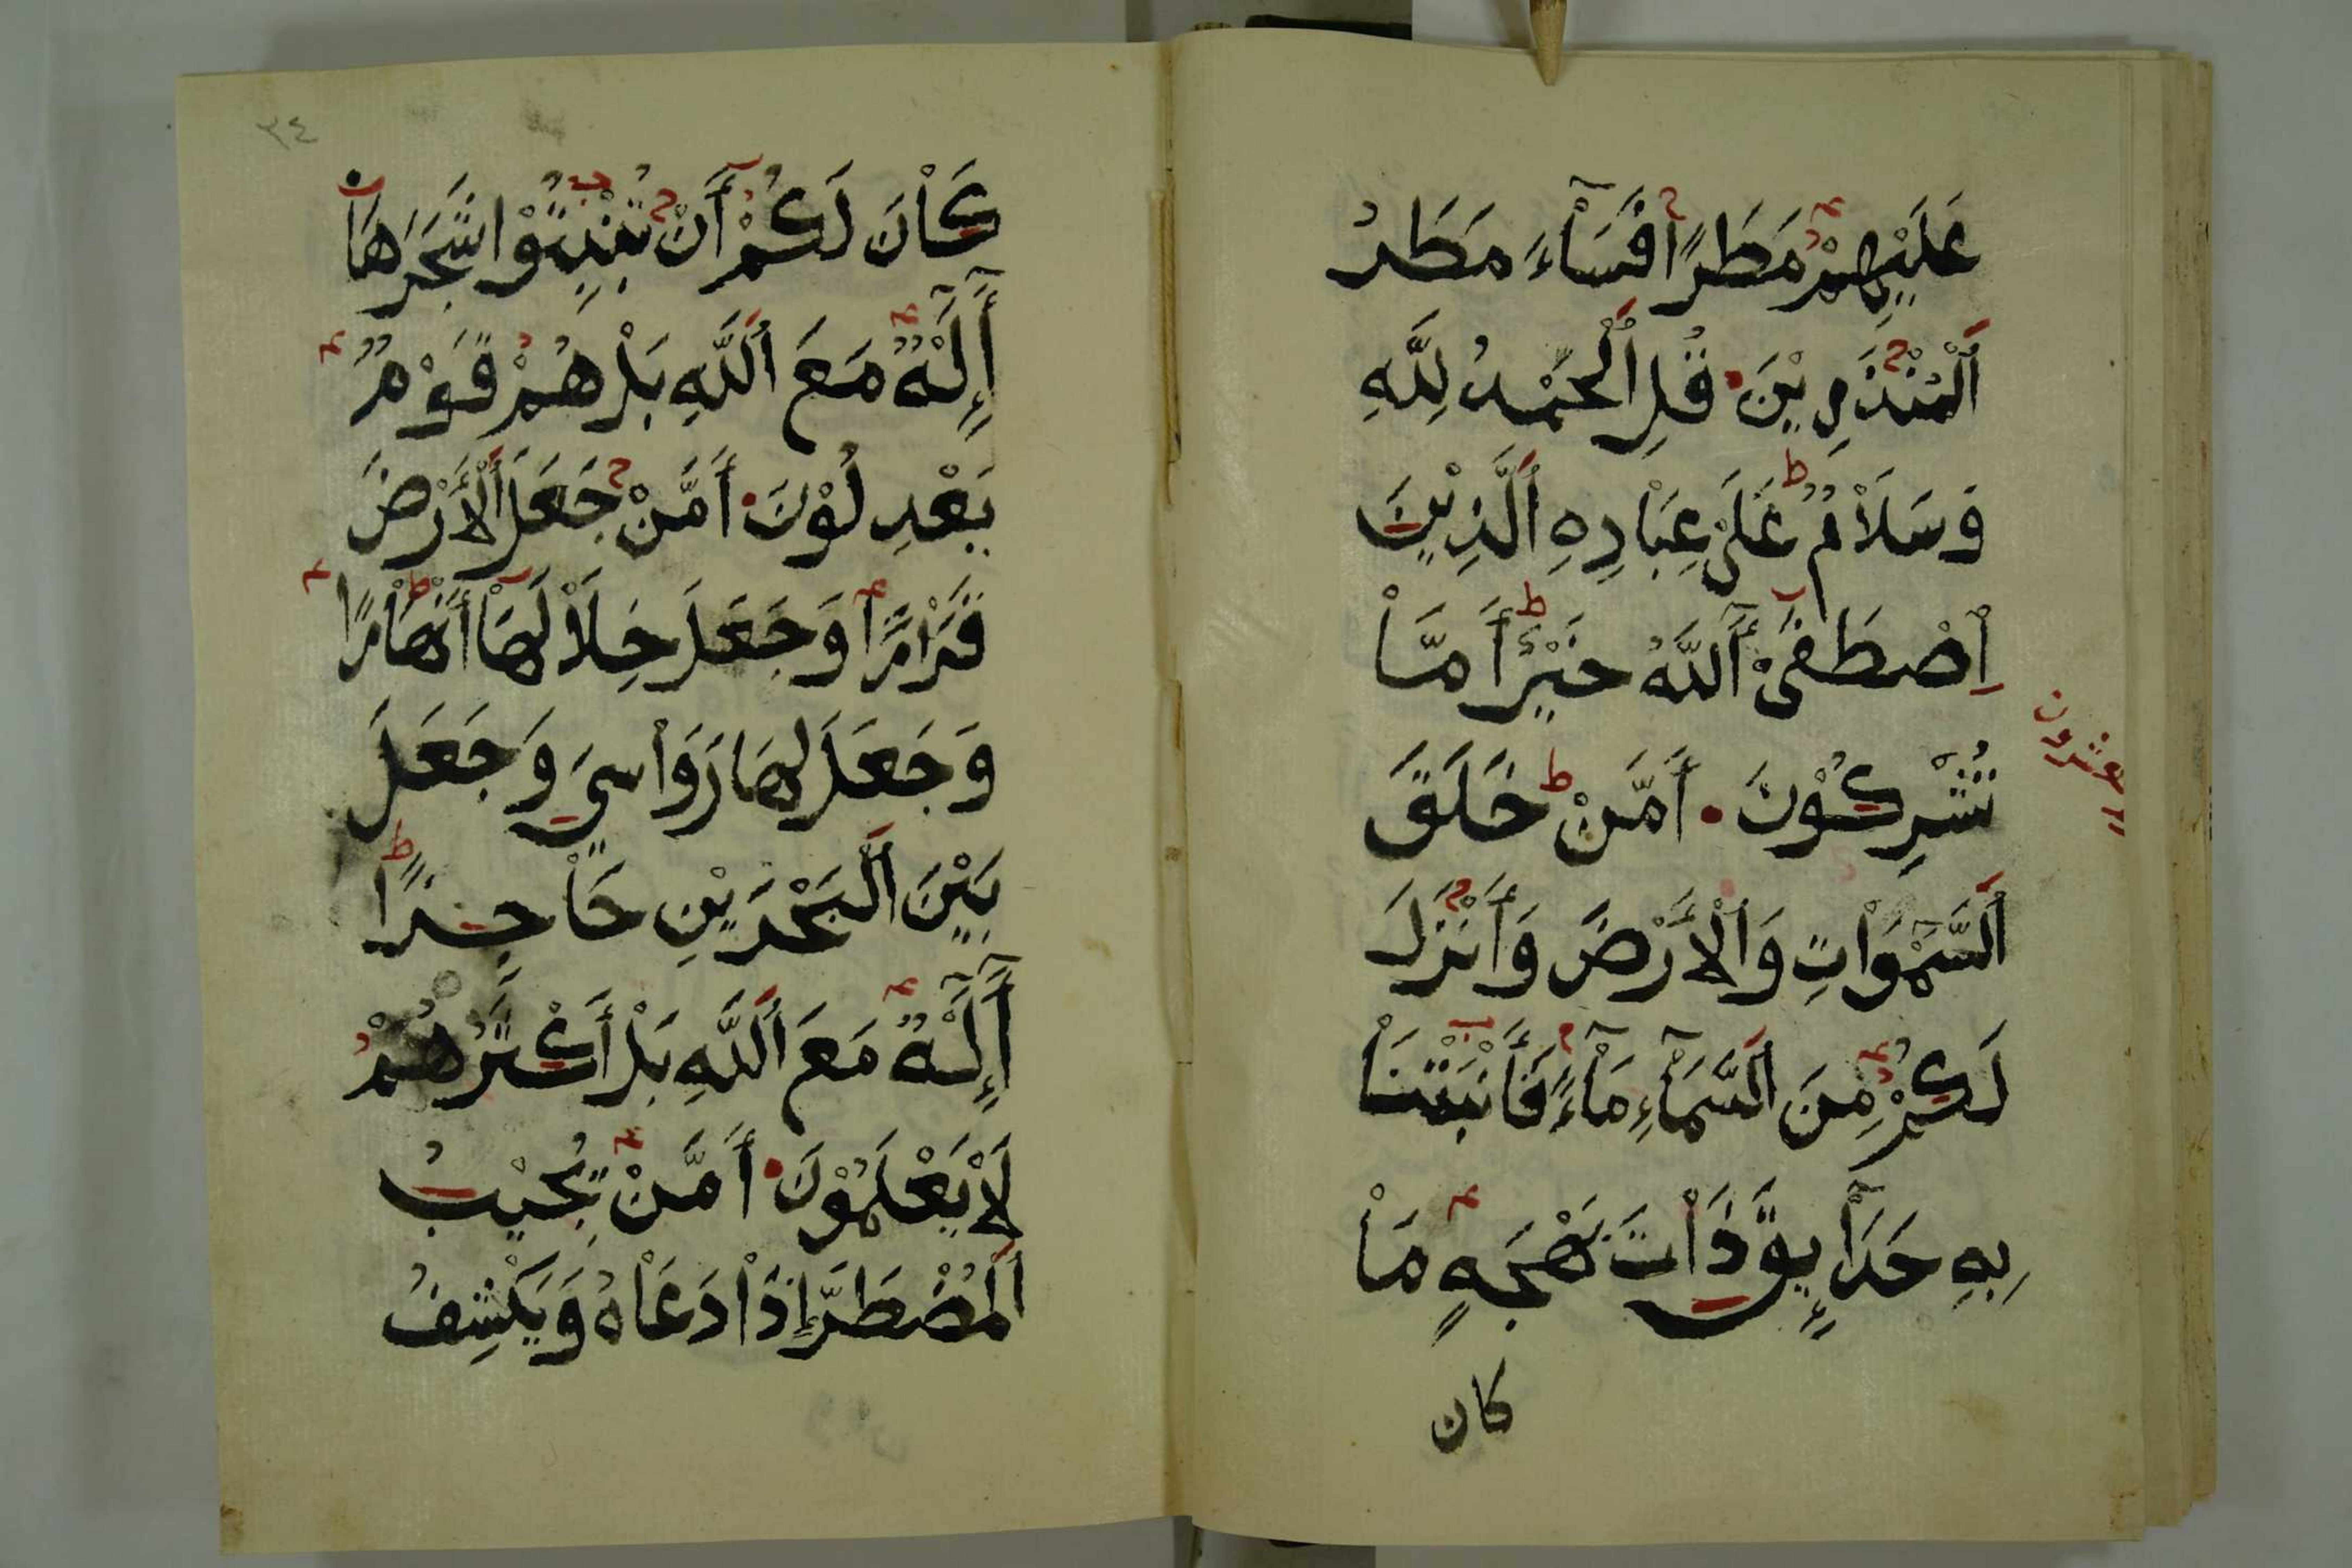 عَلَيْهِمْ مَطَرًا فَسَآءَ مَطَرُ
ٱلْمُنْذَرِيْنَ۰ قُلِ ٱلْحَمْدُ لِلَّهِ
وَسَلَاْمٌ عَلَىْ عِبَاْدِهِ ٱلَّذِيْنَ
اِصْطَفَىْ آَللَّهُ خَيْرٌ أَمَّاْ
تُشْرِكُوْنَ۰ أَمَّنْ خَلَقَ
ٱلسَّمْوَاْتِ وَٱلْأَرْضَ وَأَنْزَلَ
لَكُمْ مِنَ ٱلسَّمَآءِ مَآءً فَأَنْبَتْنَاْ
بِهِ حَدَآئِقَ ذَاْتَ بَهْجَةٍ مَاْ
كان
العشرون
٣٤
كَاْنَ لَكُمْ أَنْ تُنْبِتُوْا شَجَرَهَا
أَإِلَهٌ مَعَ ٱللَّهِ بَلْ هُمْ قَوْمٌ
يَعْدِلُوْنَ۰ أَمَّنْ جَعَلَ ٱلْأَرْضَ
قَرَاْرًا وَجَعَلَ خِلَاْلَهَاْ أَنْهَاْرًا
وَجَعَلَ لَهَا رَوَاْسِيَ وَجَعَلَ
بَيْنَ ٱلْبَحْرَيْنِ حَاْجِزًا
أَإِلَهٌ مَعَ ٱللَّهِ بَلْ أَكْثَرُهُمْ
لَاْ يَعْلَمُوْنَ۰ أَمَّنْ يُجِيْبُ
ٱلْمُضْطَرَّ إِذَاْ دَعَاْهُ وَيَكْشِفُ